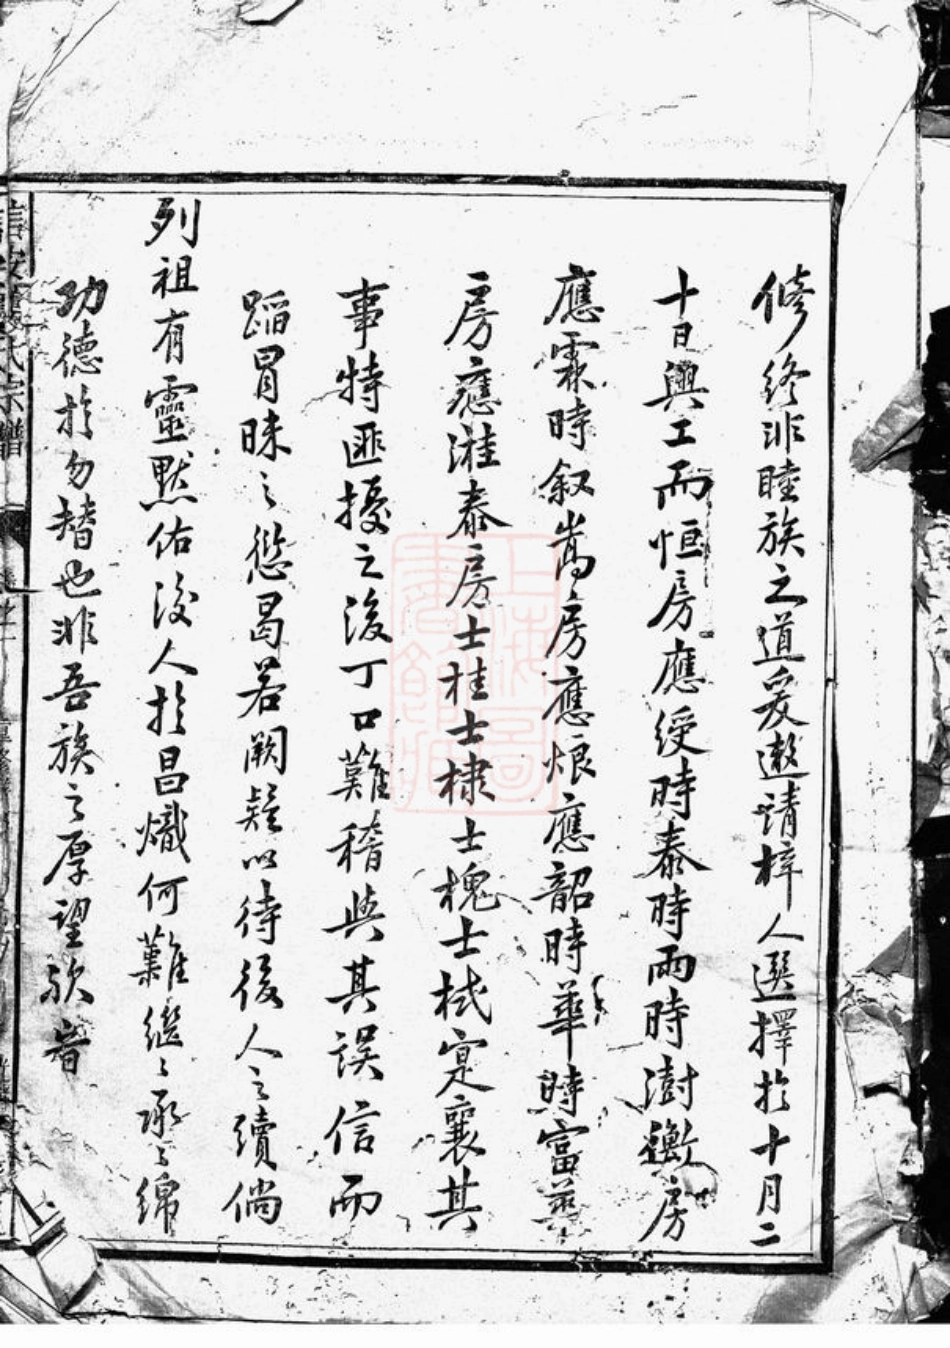 修終非睦族之道爰邀請梓人選擇於十月二
十日興工而恒房應綬時泰時雨時澍房
應霖時叙嵩房應烺應韶時華時富
房應漼泰房士桂士棣士槐士棫寔襄其
事特匪擾之後丁口難稽與其誤信而
蹈冒昧之愆曷若闕疑以待後人之續倘
列祖有靈默佑後人於昌熾何難繼〻承〻綿
功德於勿替也非吾族之厚望歟
氏宗譜
上海圖書館藏